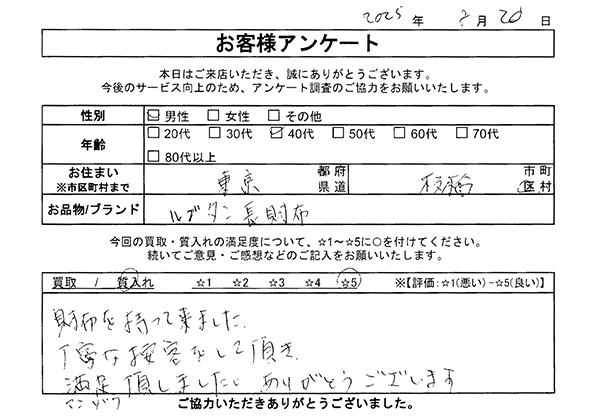 2025 年 8 月 20 日
お客様アンケート
本日はご来店いただき、誠にありがとうございます。
今後のサービス向上のため、アンケート調査のご協力をお願いいたします。
性別 ☑ 男性 □ 女性 □ その他
年齢 □ 20代 □ 30代 ☑ 40代 □ 50代 □ 60代 □ 70代
□ 80代以上
お住まい 東京 都府 板橋 市町
※市区町村まで 県道 区村
お品物/ブランド ルブタン長財布
今回の買取・質入れの満足度について、☆1~☆5に○を付けてください。
続いてご意見・ご感想などのご記入をお願いいたします。
買取 / 質入れ ☆1 ☆2 ☆3 ☆4 ☆5 ※【評価:☆1(悪い)-☆5(良い)】
財布を持って来ました
丁寧な接客をして頂き
満足 頂しました。 ありがとうございます
マンゾク
ご協力いただきありがとうございました。